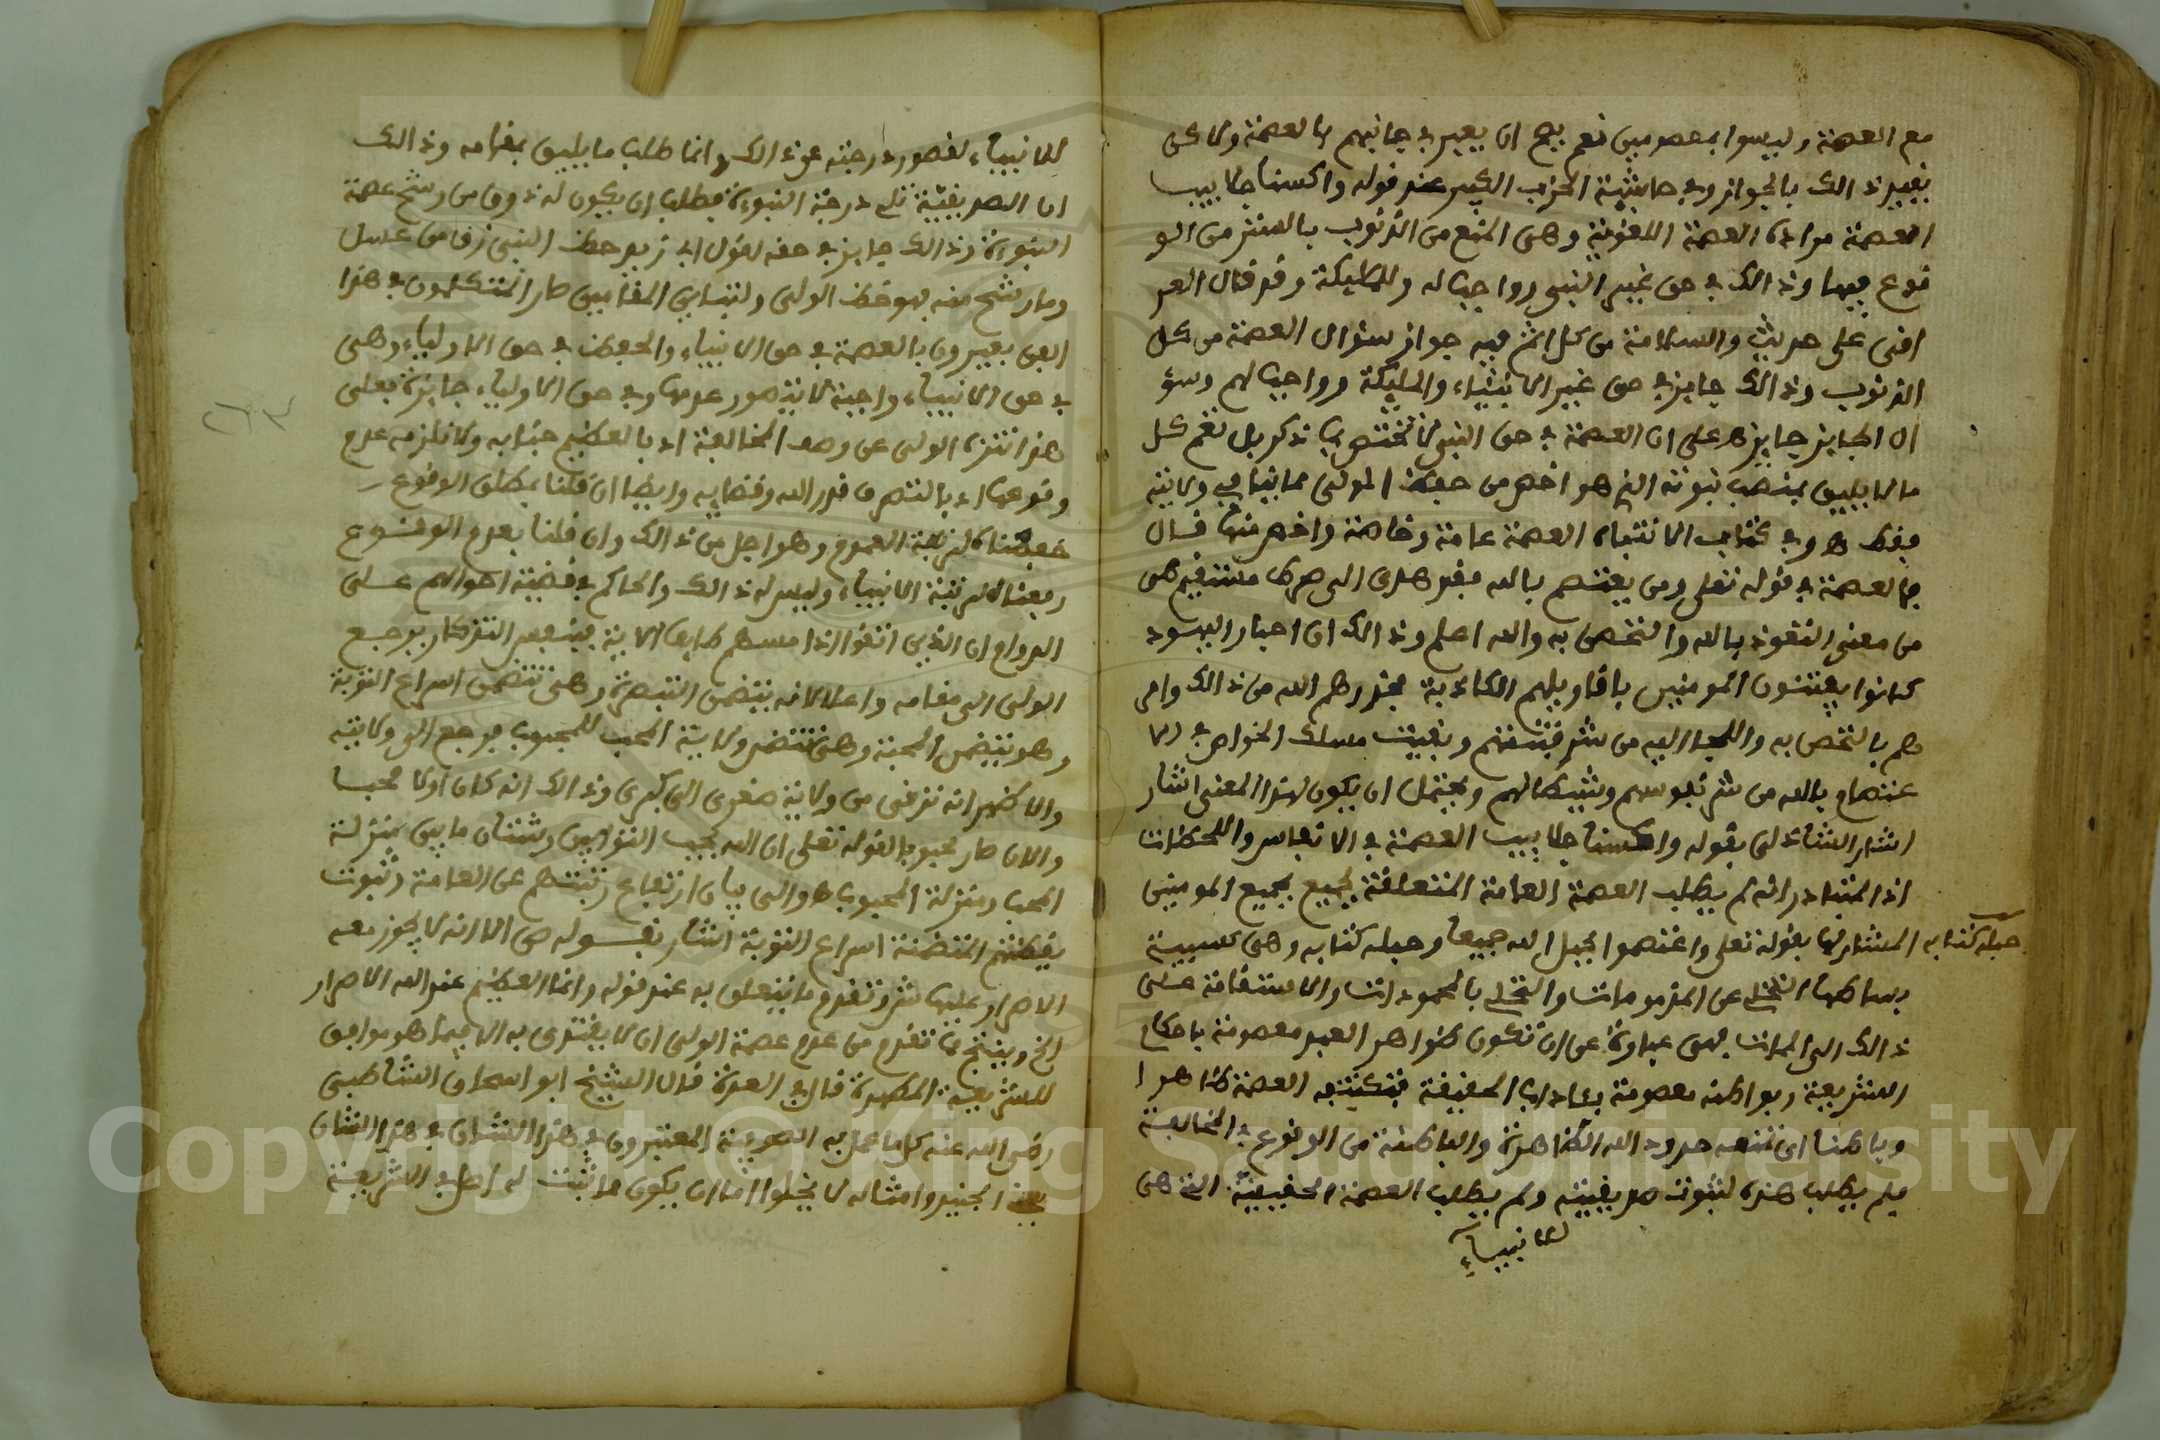 مع العصمة وليسوا بمعصومين نعم يصح ان يعبر في جانبهم بالعصمة ولاكن
بغير ذالك بالجواز وفي حاشية الحزب الكبير عند قوله واكسنا جلابيب
العصمة مراده العصمة اللغوية وهي المنع من الذنوب بالستر من الو
قوع فيها وذالك في حق غير النبي وواجب له وللملايكة وقد قال العر
افي على حديث والسلامة من كل اثم فيه جواز سؤال العصمة من كل
الذنوب وذالك جايز في حق غير الانبياء والمليكة وواجب لهم وسؤ
ال الجايز جايز ه على ان العصمة في حق النبي لا تختص بما ذكر بل تعم كل
ما لا يليق بمنصب نبوته الذي هو اخص من حفظ المولى مما ينافي ولايته
فقط ه وفي كتاب الانتباه العصمة عامة وخاصة واخص منها قال
فالعصمة في قوله تعلى ومن يعتصم بالله فقد هدى الى صراط مستقيم هي
من معنى التعوذ بالله والتحصن به والله اعلم وذالك ان احبار اليهود
كانوا يفتنون المومنين باقاويلهم الكاذبة فحذرهم الله من ذالك وامر
هم بالتحصن به واللجإ اليه من شر فتنتهم وبقيت مسلك الخواص في الا
عتصام بالله من شر نفوسهم وشيطانهم ويحتمل ان يكون لهذا المعنى اشار
اشار الشاذلي بقوله واكسنا جلابيب العصمة في الانفاس واللحظات
اذ المتبادر انه لم يطلب العصمة العامة المتعلقة بجميع بجميع المومنين
المشار لها بقوله تعلى واعتصموا بحبل الله جميعا وحبله كتابه وهي سببية
حبله كتابه
بساطها التخلي عن المذمومات والتحلي بالمحمودات والاستقامة على
ذالك الى الممات فهي عبارة عن ان تكون ظواهر العبد معصومة باحكام
الشريعة وبواطنه معصومة بئاداب الحقيقة فتكتنفه العصمة ظاهرا
وباطنا اي تمنعه حدود الله الظاهرة والباطنة من الوقوع في المخالفة
فلم يطلب هذه لثبوت صديقيته ولم يطلب العصمة الحقيقية التي هي
للانبياء
للانبياء لقصور درجته عن ذالك وانما طلب ما يليق بمقامه وذالك
ان الصديقية تلي درجة النبوءة فطلب ان يكون له ذوق من رشح عصمة
النبوءة وذالك جايز في حقه لقول ابي زيد حظ النبي زق من عسل
وما رشح منه فهو حظ الولي ولتباين المقامين صار المتكلمون في هذا
الفن يعبرون بالعصمة في حق الانبياء والحفظ في حق الاولياء وهي
في حق الانبياء واجبة لا يتصور عدمها وفي حق الاولياء جايزة فعلى
هذا تنزه الولي عن وصف المخالفة ادبا لعظيم جنابه ولا نلزمه عدم
وقوعها ادبا لتصرف قدر الله وقضايه وايضا ان قلنا بمطلق الوقوع
خفضناه لمرتبة العموم وهو اجل من ذالك وان قلنا بعدم الوقوع
رفعناه لمرتبة الانبياء وليس له ذالك والحاكم في قضية احوالهم على
الدوام ان الذين اتقوا اذا مسهم طايف الاية فينفعه التذكار يرجع
الولي الى مقامه واعلا لانه يتضمن التبصرة وهي تتضمن اسراع التوبة
وهو يتضمن المحبة وهي تتضمن ولاية المحب للمحبوب فرجع الى ولايته
والاظهر انه ترقى من ولاية صغرى الى كبرى وذالك انه كان اولا محبا
والان صار محبوبا لقوله تعلى ان الله يحب التوابين وشتان ما بين منزلة
المحب ومنزلة المحبوب ه والى بيان ارتفاع رتبتهم عن العامة وثبوت
يقظتهم المتضمنة اسراع التوبة اشار بقوله ص الا انه لا يجوز معه
الاصرار عليها ش وتقدم ما يتعلق به عند قوله وانما العظيم عند الله الاصرار
الخ وينتج مما تقدم من عدم عصمة الولي ان لا يقتدى به الا فيما هو موافق
للشريعة المطهرة قال في العدة قال الشيخ ابو اسحاق الشاطبي
رضي الله عنه كل ما عمل به الصوفية المعتبرون في هذا الشان في هذا الشان
يعني الجنيد وامثاله لا يخلوا اما ان يكون مما ثبت له اصل في الشريعة
Copyright © King Saud University